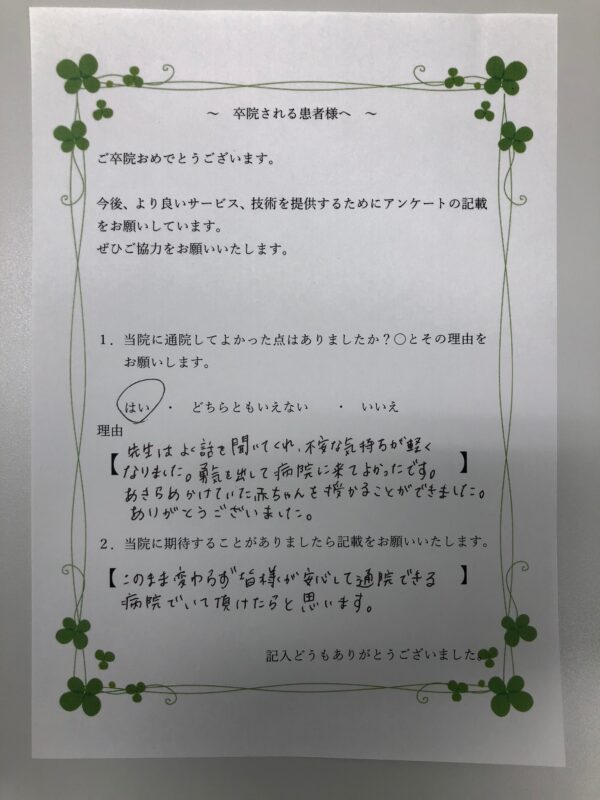 ～ 卒院される患者様へ ～
ご卒院おめでとうございます。
今後、より良いサービス、技術を提供するためにアンケートの記載
をお願いしています。
ぜひご協力をお願いいたします。
１．当院に通院してよかった点はありましたか？〇とその理由を
お願いします。
はい ・ どちらともいえない ・ いいえ
理由
【先生はよく話を聞いてくれ、不安な気持ちが軽く
なりました。勇気を出して病院に来てよかったです。】
あきらめかけていた赤ちゃんを授かることができました。
ありがとうございました。
２．当院に期待することがありましたら記載をお願いいたします。
【このまま変わらず皆様が安心して通院できる】
病院でいて頂けたらと思います。
記入どうもありがとうございました。